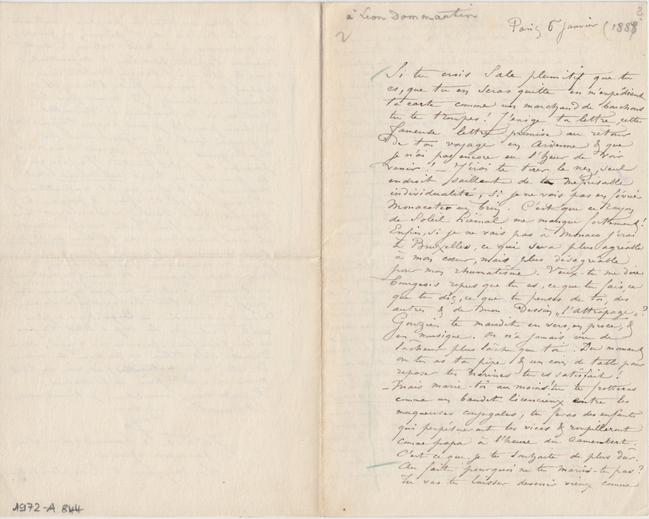 à Léon Dommartin
2
Paris 6 janvier (1888)
Si tu crois Sale plumitif que tu
es, que tu en seras quitte en m'expédiant
ta carte comme un marchand de
tu te trompes! J'exige ta lettre, cette
fameuse lettre promise au retour
de ton voyage en Ardenne & que
je n'ai pas encore eu l'heur de voir
venir! – J'irai te tirer le nez, seul
endroit saillant de ta méprisable
individualité, si je ne vais pas en février
C'est que ce rayon
de Soleil hiémal me manque fortement!
Enfin, si je ne vais pas à Monaco j'irai
à Bruxelles, ce qui sera plus agréable
à mon cœur, mais plus désagréable
pour mon rhumatisme. Veux-tu me dire
bourgeois repus que tu es, ce que tu fais, ce
que tu dis, ce que tu penses de toi, des
autres & de mon Dessin „l'attrapage"?
Gouzien te maudit en vers, en prose, &
en musique. On n'a jamais vu de
lâcheur plus lâche que toi. Du moment
où tu as ta pipe & un coin de table pour
reposer tes narines tu es satisfait!
– Mais marie-toi au moins! tu te frotteras
comme un baudet licencieux entre les
muqueuses conjugales, tu feras des enfants
qui perpétueront tes vices & roupilleront
comme papa à l'heure du Camembert.
C'est ce que je te souhaite de plus dur.
Au fait pourquoi ne te maries-tu pas?
Tu vas te laisser devenir vieux comme
1972-A 844